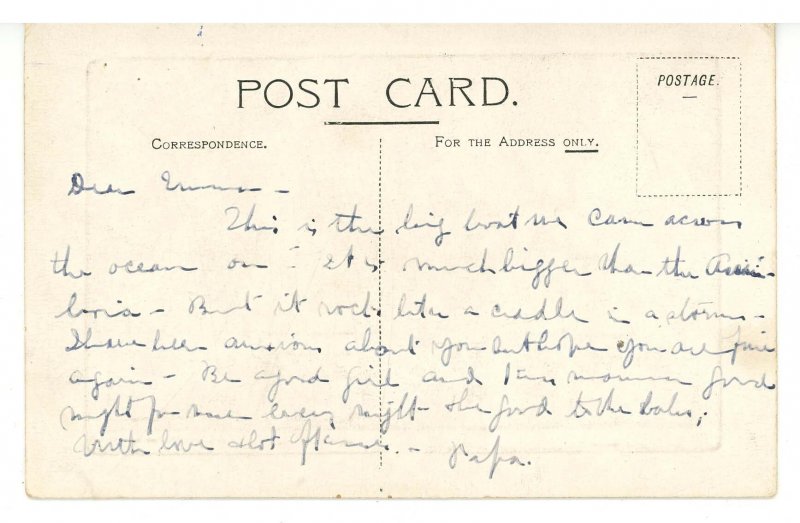 POST CARD.
POSTAGE.
CORRESPONDENCE.
FOR THE ADDRESS ONLY.
Dear
This is the big boat we came across
the ocean on - It is much bigger than the
- But it rocks like a cradle in a storm -
I have been anxious about you but hope you are fine
again - Be a good girl and mamma good
night for me every night - be good to the baby,
With love & lots of kisses. -
Papa.